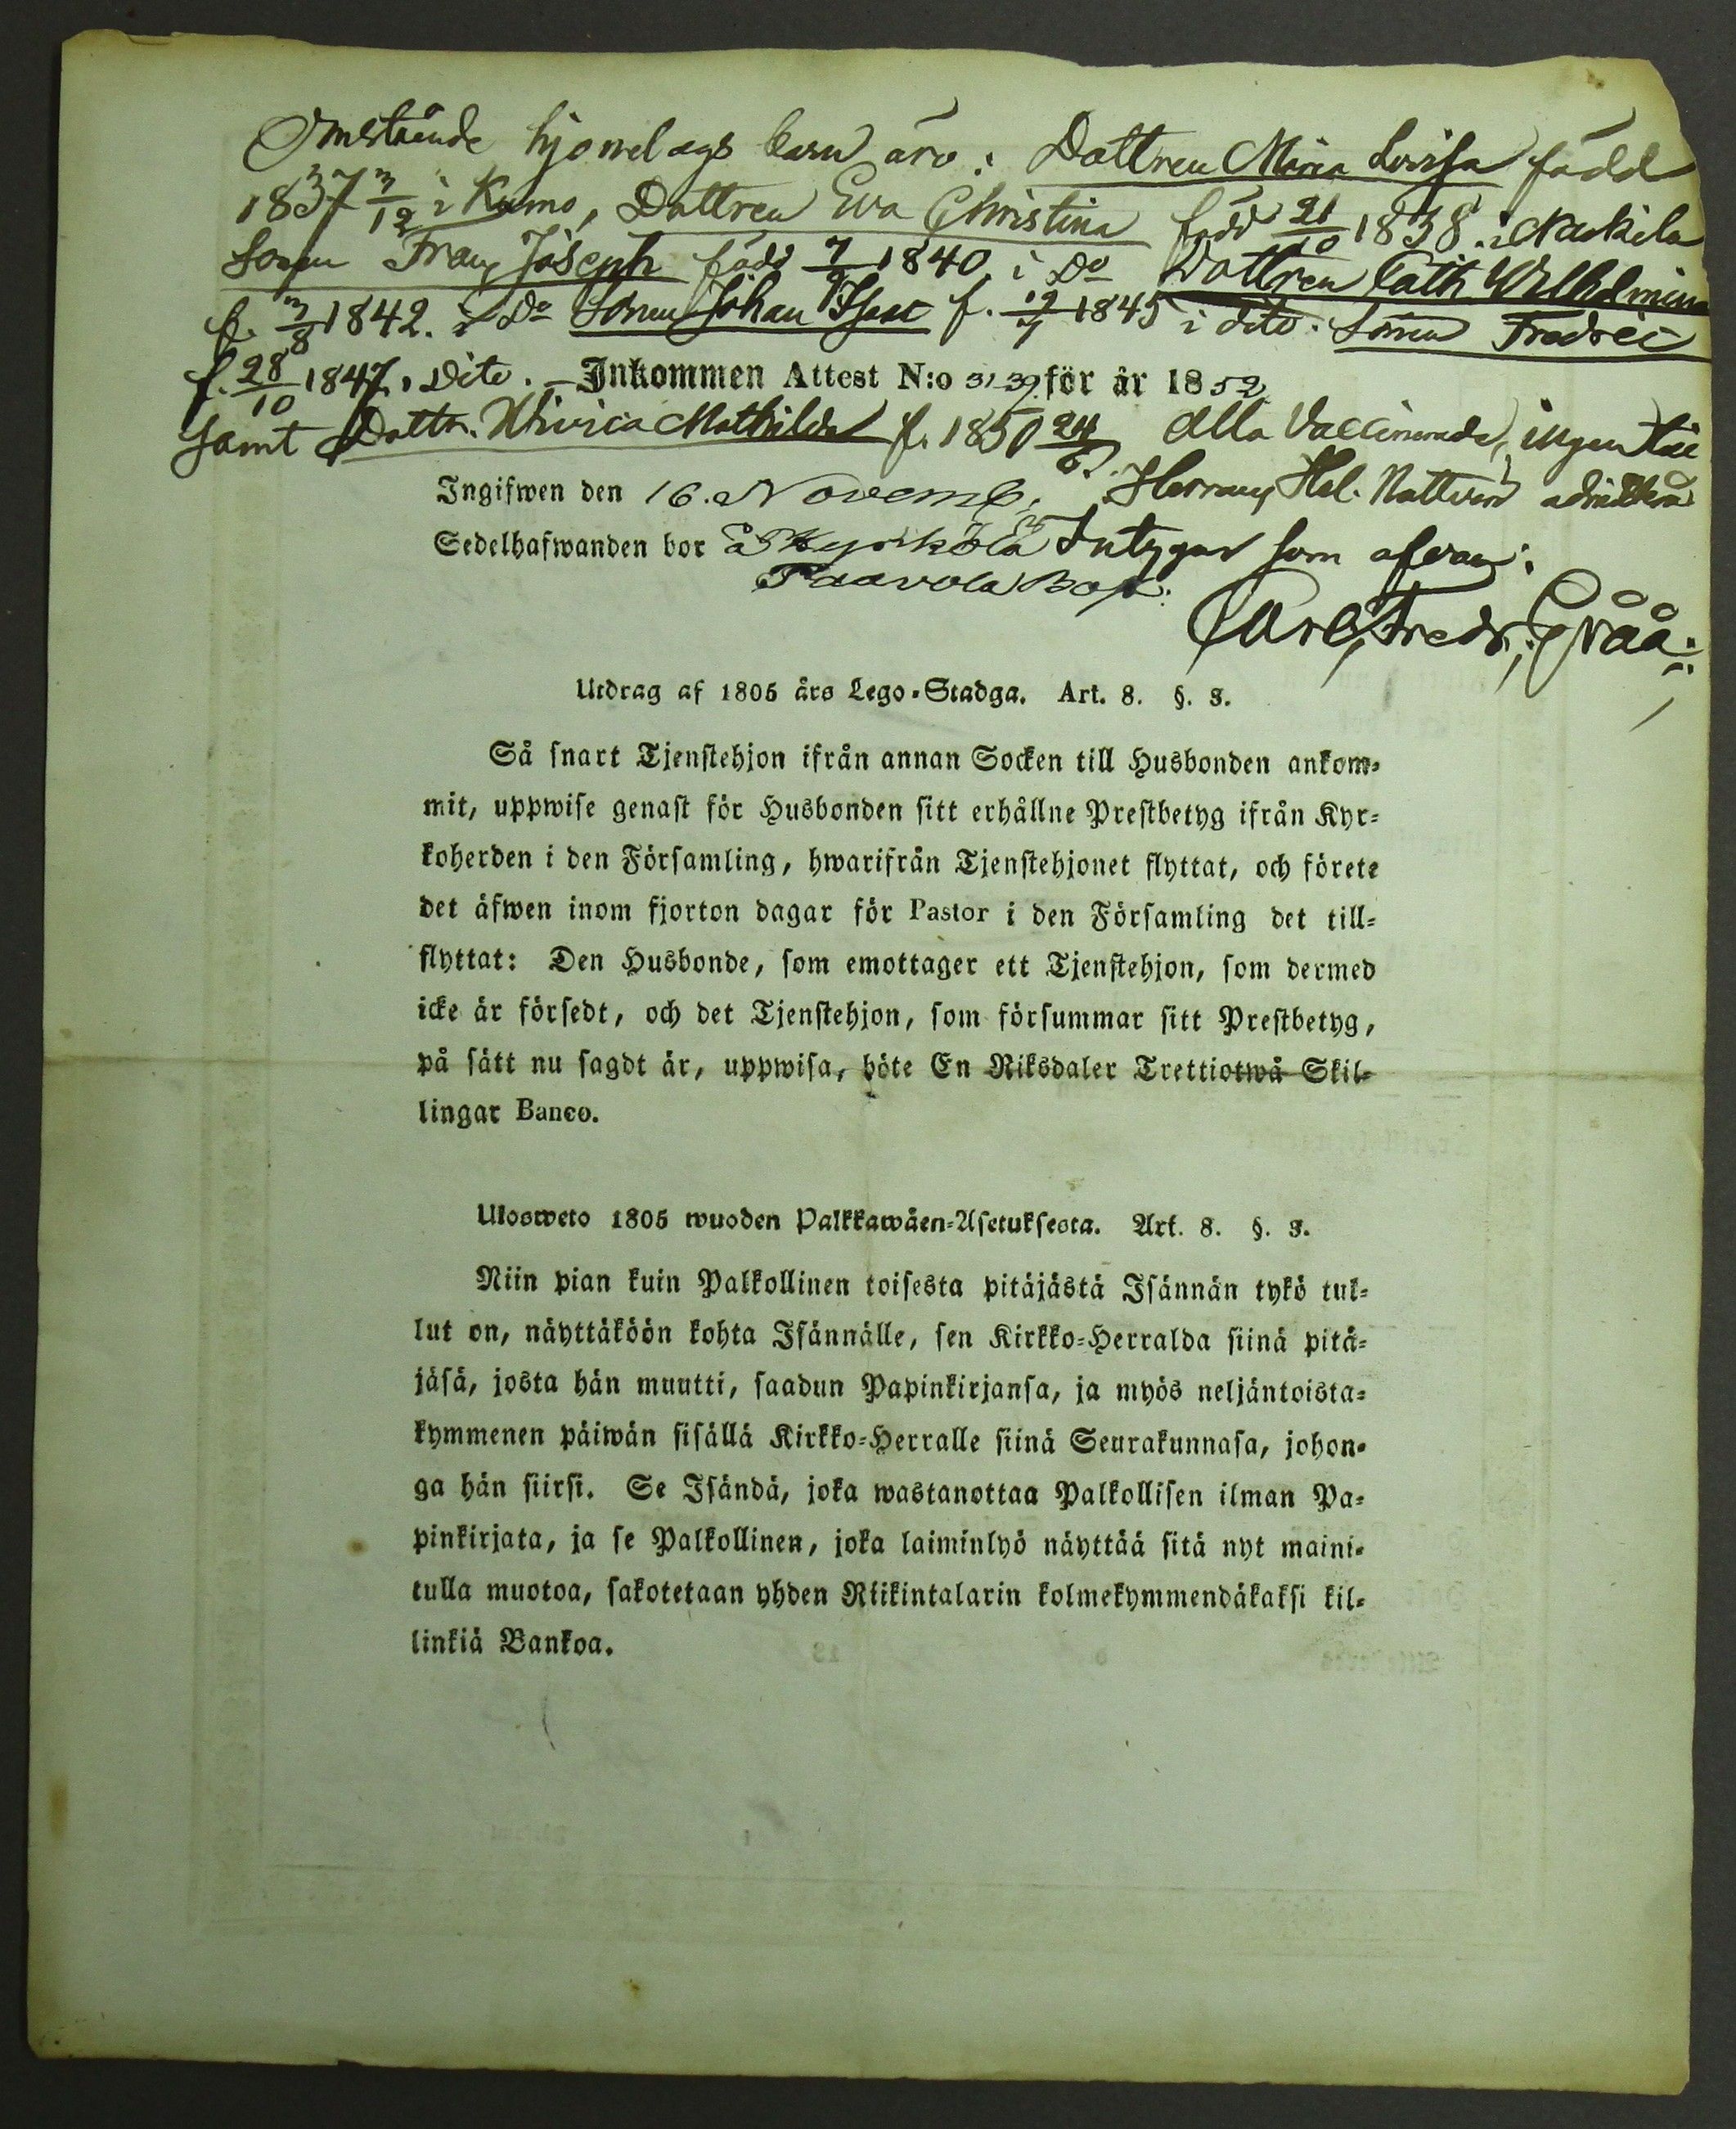 Omstående hjonelags barn äro: Dottren Maria Lovisa född
1837 3/12 i Kumo, Dottren Eva Christina född 21/10 1838. i Nackila
Sonen Franz Joseph född 7/ 1840, i Do Dottren Cath Wilhelmina
f. 3/8 1842. i Do Sonen Johan Isac f. 12/7 1845 i dito. Sonen Fredric
f. 28/10 1847, Dito. – Inkommen Attest N:o 3139 för år 1852
samt Dottr. Ulrica Mathilda f. 1850 24/ Alla Vaccinerade, ingen till
Ingifwen den 16. Novemb. Herrans Hel. Nattvard admitterad
Sedelhafwanden bor å Kyrkölä Intygar som ofvan:
Paavola
Carl Fredr: Gråå:
Utdrag af 1805 års Lego-Stadga. Art. 8. §. 3.
Så snart Tjenstehjon ifrån annan Socken till Husbonden ankom-
mit, uppwise genast för Husbonden sitt erhållne Prestbetyg ifrån Kyr-
koherden i den Församling, hwarifrån Tjenstehjonet flyttat, och förete
det äfwen inom fjorton dagar för Pastor i den Församling det till-
flyttat: Den Husbonde, som emottager ett Tjenstehjon, som dermed
icke är försedt, och det Tjenstehjon, som försummar sitt Prestbetyg,
på sätt nu sagdt är, uppwisa, böte En Riksdaler Trettiotwå Skil-
lingar Banco.
Ulosweto 1805 wuoden Palkkawäen-Asetuksesta. Art. 8. §. 3.
Niin pian kuin Palkollinen toisesta pitäjästä Isännän tykö tul-
lut on, näyttäköön kohta Isännälle, sen Kirkko-Herralda siinä pitä-
jäsä, josta hän muutti, saadun Papinkirjansa, ja myös neljäntoista-
kymmenen päiwän sisällä Kirkko-Herralle siinä Seurakunnasa, johon-
ga hän siirsi. Se Isändä, joka wastanottaa Palkollisen ilman Pa-
pinkirjata, ja se Palkollinen, joka laiminlyö näyttää sitä nyt maini-
tulla muotoa, sakotetaan yhden Riikintalarin kolmekymmendäkaksi kil-
linkiä Bankoa.